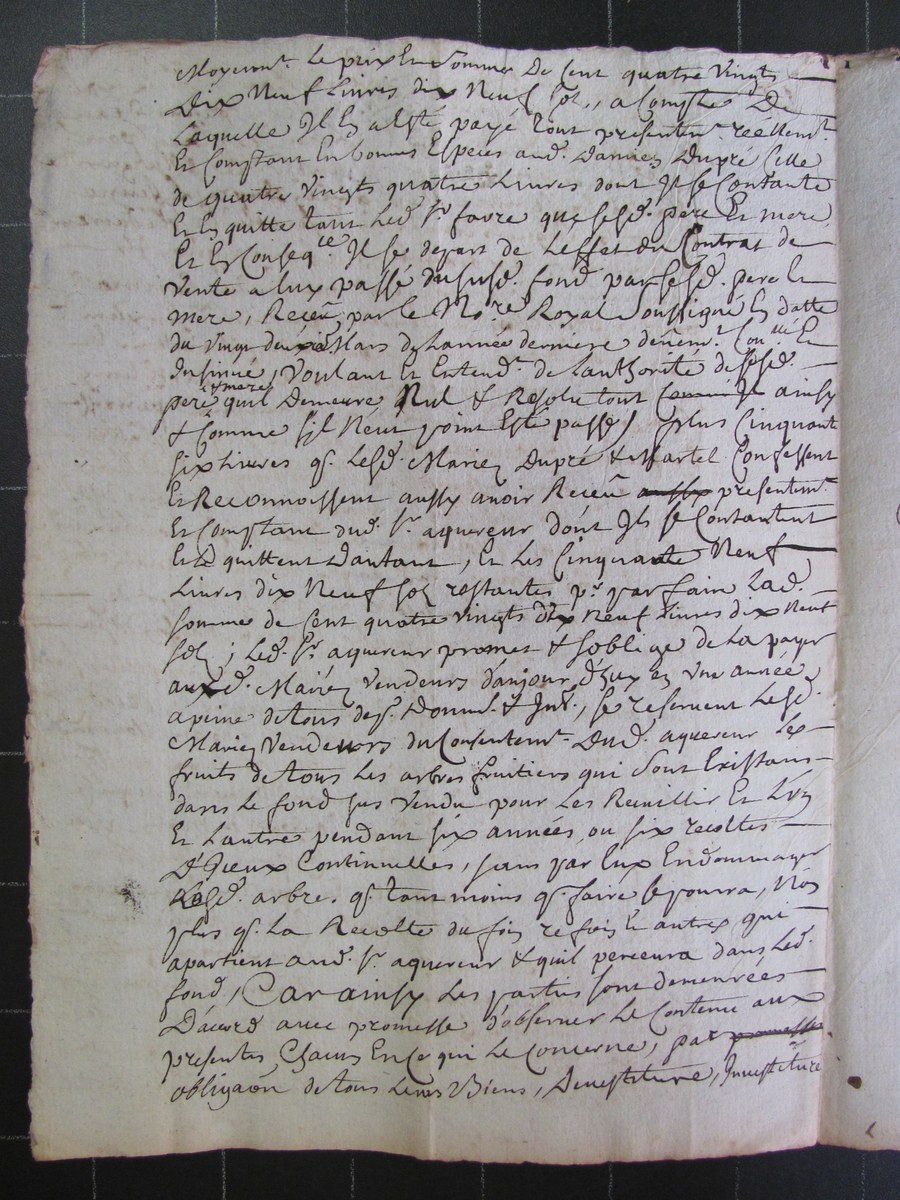 Moyenent. Le prix Et Somme De Cent quatre Vingts
Dix Neuf Livres dix Neuf sol., a Compte De
Laquelle Il En a Esté payé tout presentemt. réellemt.
Et Comptant En bonnes Especes aud. Dupré Celle
de quatre Vingts quatre Livres dont Il se Contante
Et En quitte tant Led. Sr. favre que sesd. pere Et mere
Et En Conseqce. Il se depart de L'effet du Contrat de
Vente a luy passé du susd. fond par sesd. pere Et
mere, Receu par le Nore Royal Soussigné En datte
du Vingt deux Mars de L'année derniere Et
Insinué, Voulant Et Entendt. de L'authorité de sesd.
pere & mere quil Demeure Nul & Resolu tout ainsy
& Comme s'il N'eut point Esté passé / plus Cinquante
six Livres q. Lesd. Mariez Dupré & Martel Confessent
Et Reconnoissent aussy avoir Receu aussy presentemt.
Et Comptant dud. Sr. aquereur dont Ils se Contantent
Et Le quittent D'autant, Et Les Cinquante Neuf
Livres dix Neuf sol restantes pr. parfaire Lad.
somme de Cent quatre Vingts dix Neuf Livres dix Neuf
sol; Led. Sr. aquereur promet & s'oblige de La payer
auxd. Mariez Vendeurs d'aujourd'huy en une année
a peine de tous desp. Domm. & Int., se reservent Lesd.
Mariez Vendeurs du Consentemt. Dud. aquereur Les
fruits de tous Les arbres fruitiers qui sont Existans
dans Le fond sus Vendu pour Les Reuillir Et L'un
Et L'autre pendant six années ou six recoltes
D'Iceux Continuelles, sans par Eux Endommager
Lesd. arbres q. tant moins q. faire se pourra, Non
plus q. La Recolte du foin refoin Et autres qui
apartient aud. Sr. aquereur & quil percevra dans Led.
fond, Car ainsy Les parties sont demeurées
D'acord avec promesse d'observer Le Contenu aux
presentes Chacun En Ce qui Le Concerne, par promesse
obligaon de tous Leurs Biens, Devestiture, Investiture